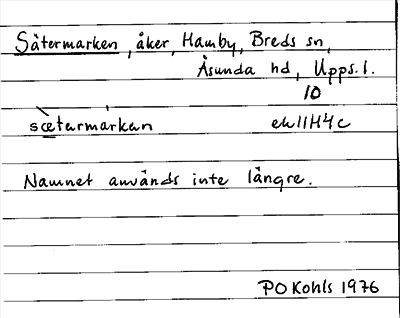 Sätermarken, åker, Hamby, Breds sn,
Åsunda hd, Upps. l.
10
sœ̀tərmárkən ek11H4c
Namnet används inte längre.
PO Kohls 1976